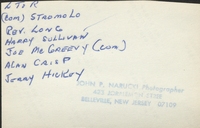 L TO R
(COM) STROMOLO
REV. LONG
HARRY SULLIVAN
JOE MCGREEVY (COM)
ALAN CRISP
JERRY HICKEY
JOHN P. Photographer
BELLEVILLE, NEW JERSEY 07109